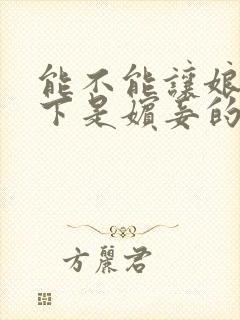 能不能讓娘
下是嬪妾的
方麗君